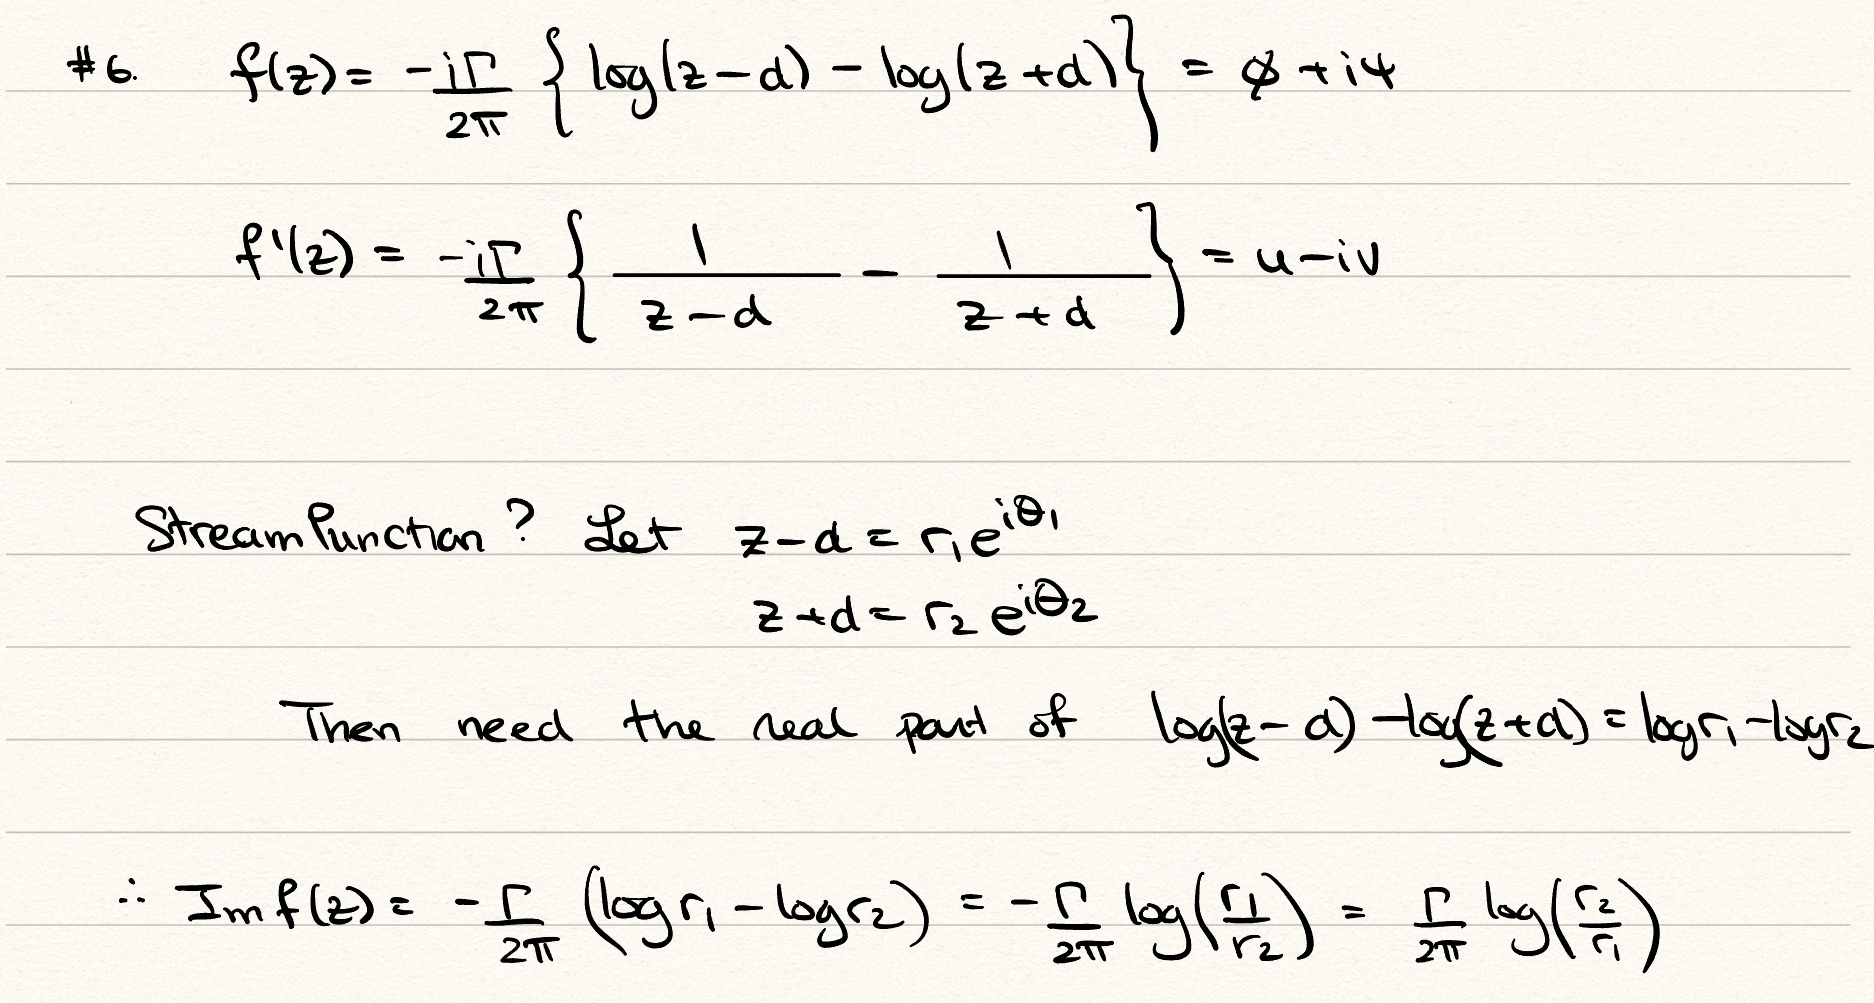 #6. f(z) = -iΓ/2π { log(z-d) - log(z+d) } = φ + iψ
f'(z) = -iΓ/2π { 1/(z-d) - 1/(z+d) } = u - iv
Streamfunction? Let z-d = r₁e^{iθ₁}
z+d = r₂ e^{iθ₂}
Then need the real part of log(z-d) - log(z+d) = log r₁ - log r₂
∴ Im f(z) = -Γ/2π (log r₁ - log r₂) = -Γ/2π log(r₁/r₂) = Γ/2π log(r₂/r₁)